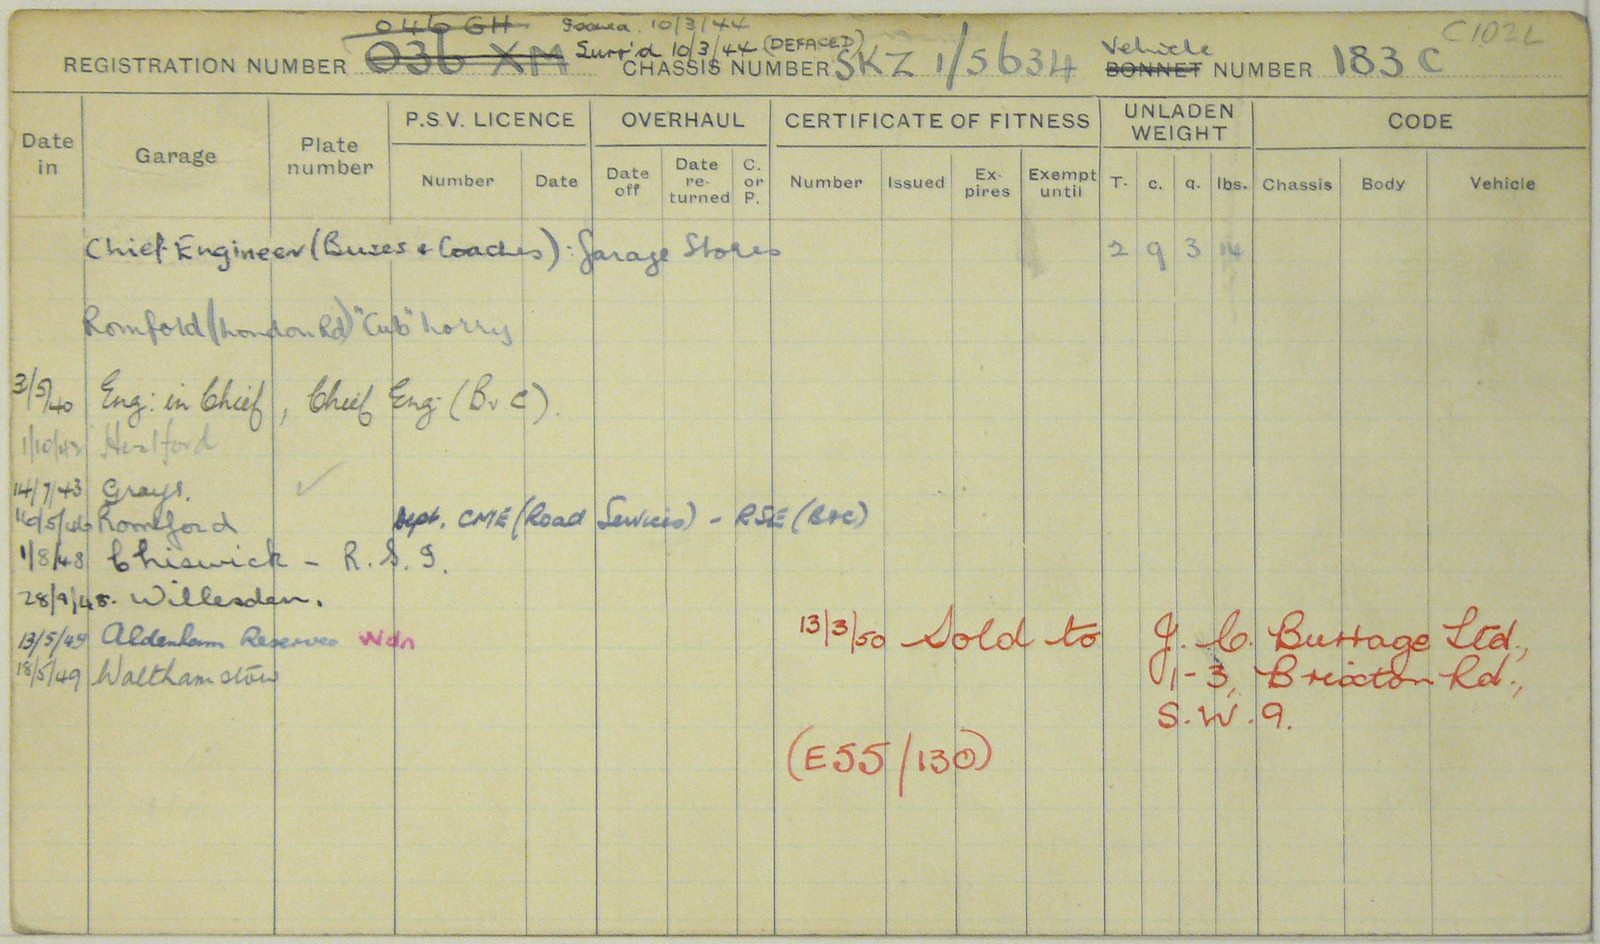 046 GH Issued 10/3/44 C102L
REGISTRATION NUMBER 036 XM Surr'd 10/3/44 (DEFACED) CHASSIS NUMBER SKZ 1/5634 Vehicle BONNET NUMBER 183 C
Date in Garage Plate number P.S.V. LICENCE OVERHAUL CERTIFICATE OF FITNESS UNLADEN WEIGHT CODE
Number Date Date off Date re-turned C. or P. Number Issued Ex-pires Exempt until T. c. q. lbs. Chassis Body Vehicle
Chief Engineer (Buses & Coaches): Garage Stores 2 9 3 14
Romford (London Rd) "Cub" Lorry
3/5/40 Eng: in Chief, Chief Eng: (B & C).
1/10/42 Hertford
14/7/43 Grays. ✓
16/5/46 Romford Dept. CME (Road Services) - RSE (B+C)
1/8/48 Chiswick - R.S.I.
28/9/48. Willesden.
13/5/49 Aldenham Reserves Wdn
18/5/49 Walthamstow
13/3/50 Sold to J. C. Burrage Ltd.,
1-3, Brixton Rd.,
S.W.9.
(E55/130)